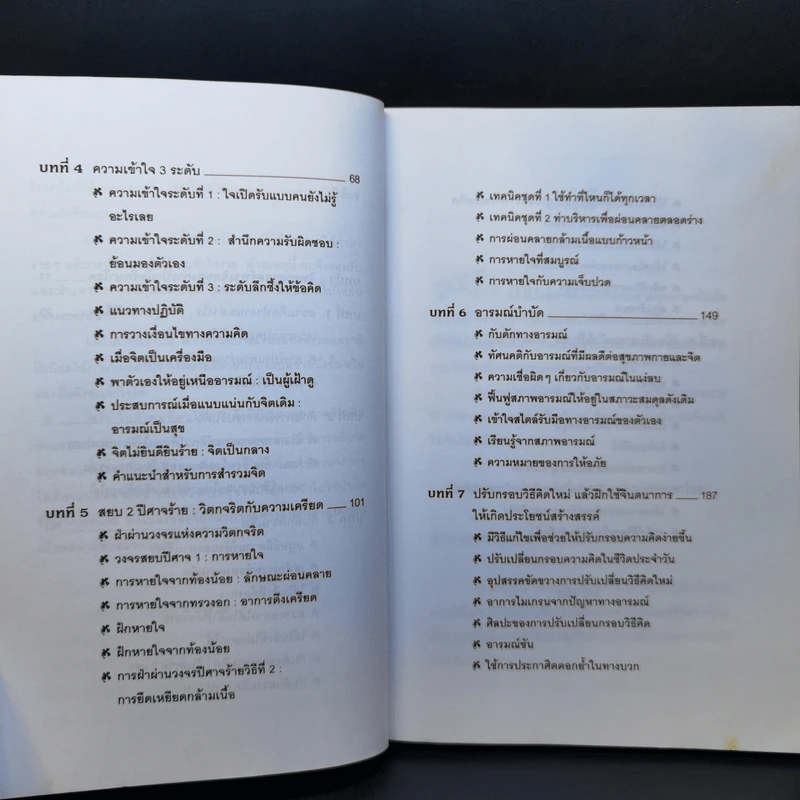 บทที่ 4 ความเข้าใจ 3 ระดับ 68
ความเข้าใจระดับที่ 1 : ใจเปิดรับแบบคนยังไม่รู้
อะไรเลย
ความเข้าใจระดับที่ 2 : สำนึกความรับผิดชอบ :
ย้อนมองตัวเอง
ความเข้าใจระดับที่ 3 : ระดับลึกซึ้งให้ข้อคิด
แนวทางปฏิบัติ
การวางเงื่อนไขทางความคิด
เมื่อจิตเป็นเครื่องมือ
พาตัวเองให้อยู่เหนืออารมณ์ : เป็นผู้เฝ้าดู
ประสบการณ์เมื่อแนบแน่นกับจิตเดิม :
อารมณ์เป็นสุข
จิตไม่ยินดียินร้าย : จิตเป็นกลาง
คำแนะนำสำหรับการสำรวมจิต
บทที่ 5 สยบ 2 ปีศาจร้าย : วิตกจริตกับความเครียด 101
ฝ่าผ่านวงจรแห่งความวิตกจริต
วงจรสยบปีศาจ 1 : การหายใจ
การหายใจจากท้องน้อย : ลักษณะผ่อนคลาย
การหายใจจากทรวงอก : อาการตึงเครียด
ฝึกหายใจ
ฝึกหายใจจากท้องน้อย
การฝ่าผ่านวงจรปีศาจร้ายวิธีที่ 2 :
การยืดเหยียดกล้ามเนื้อ
เทคนิคชุดที่ 1 ใช้ทำที่ไหนก็ได้ทุกเวลา
เทคนิคชุดที่ 2 ท่าบริหารเพื่อผ่อนคลายตลอดร่าง
การผ่อนคลายกล้ามเนื้อแบบก้าวหน้า
การหายใจที่สมบูรณ์
การหายใจกับความเจ็บปวด
บทที่ 6 อารมณ์บำบัด 149
กับดักทางอารมณ์
ทัศนคติกับอารมณ์ที่มีผลดีต่อสุขภาพกายและจิต
ความเชื่อผิดๆ เกี่ยวกับอารมณ์ในแง่ลบ
ฟื้นฟูสภาพอารมณ์ให้อยู่ในสภาวะสมดุลดังเดิม
เข้าใจสไตล์รับมือทางอารมณ์ของตัวเอง
เรียนรู้จากสภาพอารมณ์
ความหมายของการให้อภัย
บทที่ 7 ปรับกรอบวิธีคิดใหม่ แล้วฝึกใช้จินตนาการ 187
ให้เกิดประโยชน์สร้างสรรค์
มีวิธีแก้ไขเพื่อช่วยให้ปรับกรอบความคิดง่ายขึ้น
ปรับเปลี่ยนกรอบความคิดในชีวิตประจำวัน
อุปสรรคขัดขวางการปรับเปลี่ยนวิธีคิดใหม่
อาการไมเกรนจากปัญหาทางอารมณ์
ศิลปะของการปรับเปลี่ยนกรอบวิธีคิด
อารมณ์ขัน
ใช้การประกาศิตดอกย้ำในทางบวก